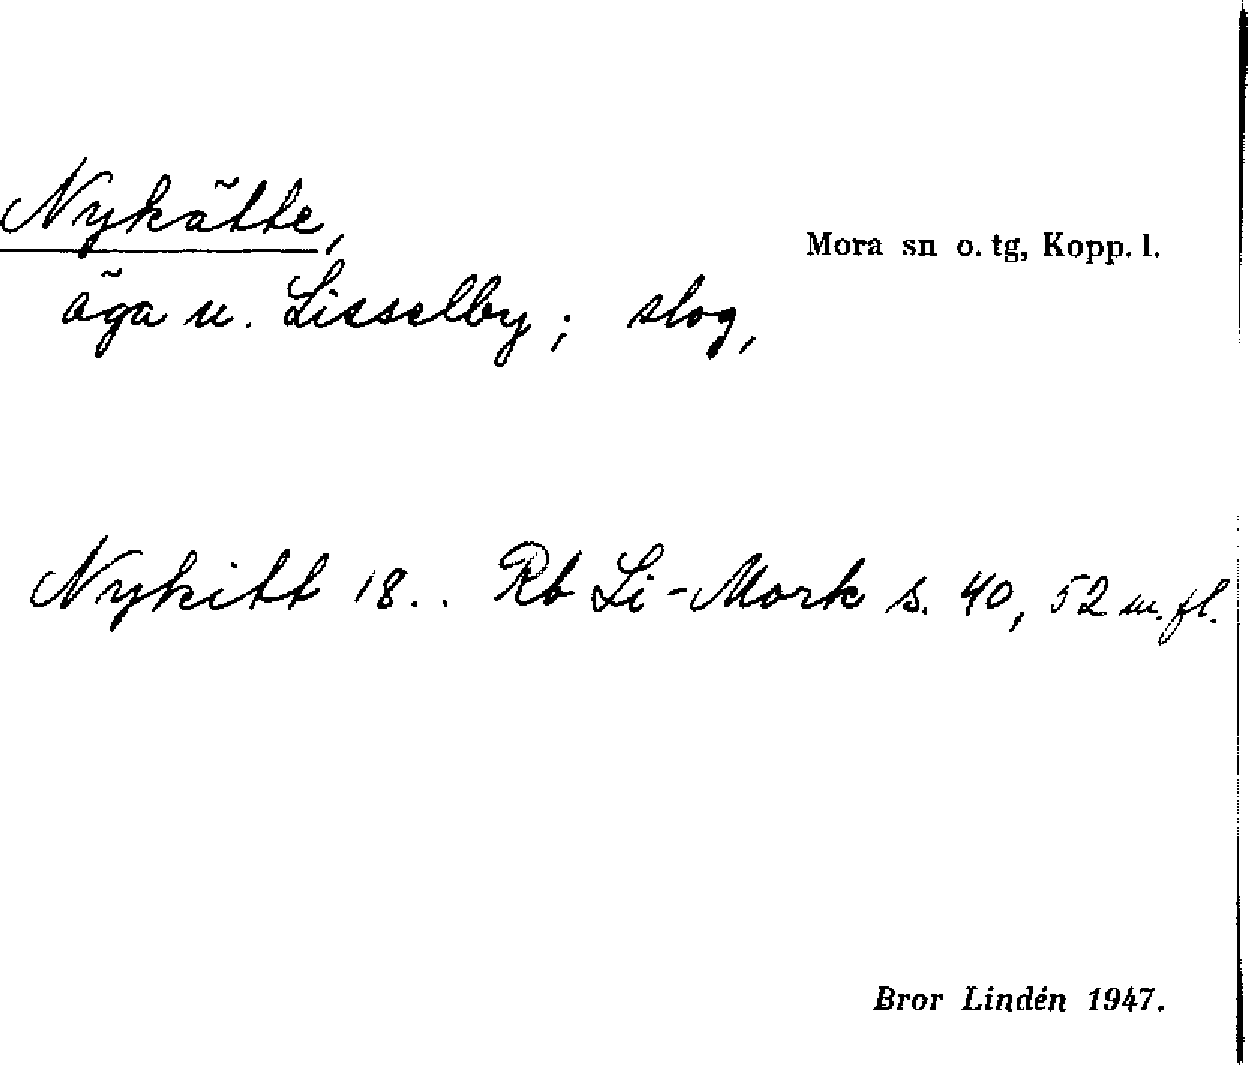 Nykätte,
Mora sn o. tg, Kopp. l.
äga u. Lisselby; slog,
Nykitt 18.. Rb Li-Mork s. 40, 52 m. fl.
Bror Lindén 1947.